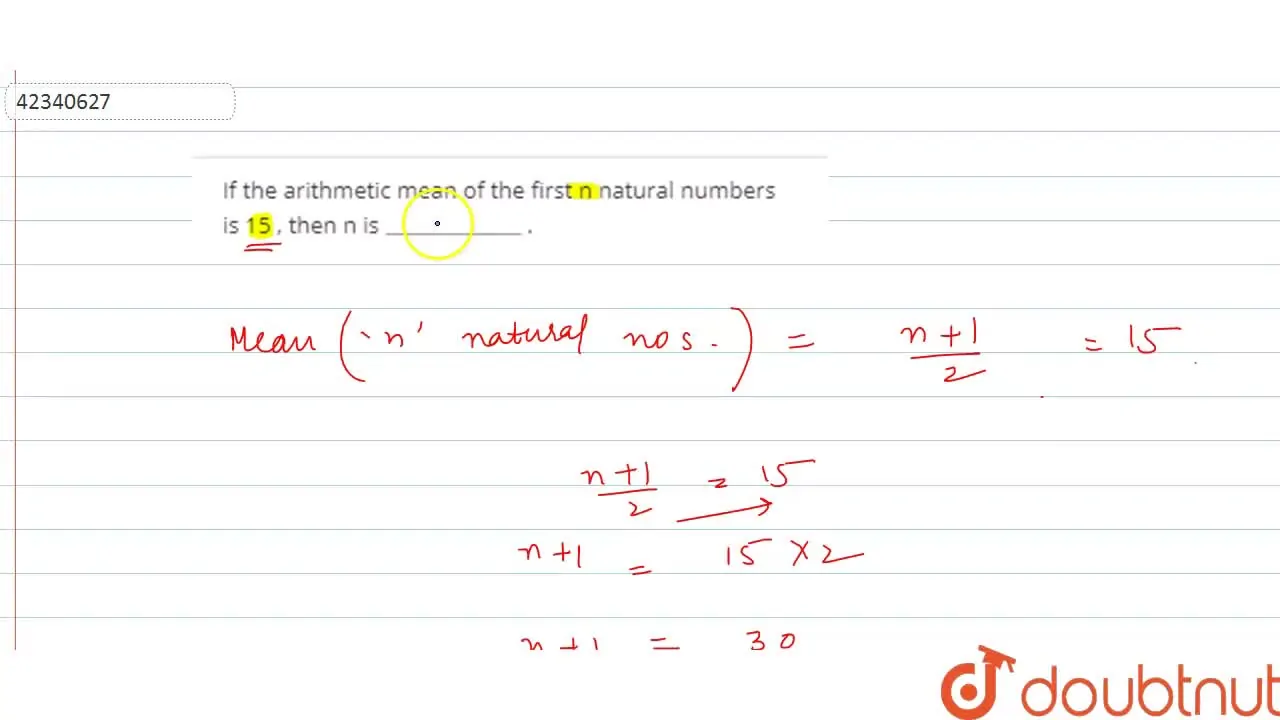 42340627
If the arithmetic mean of the first n natural numbers
is 15, then n is __________ .
Mean ( 'n' natural nos. ) = n+1/2 = 15
n+1/2 = 15
n+1 = 15 × 2
n+1 = 30
doubtnut